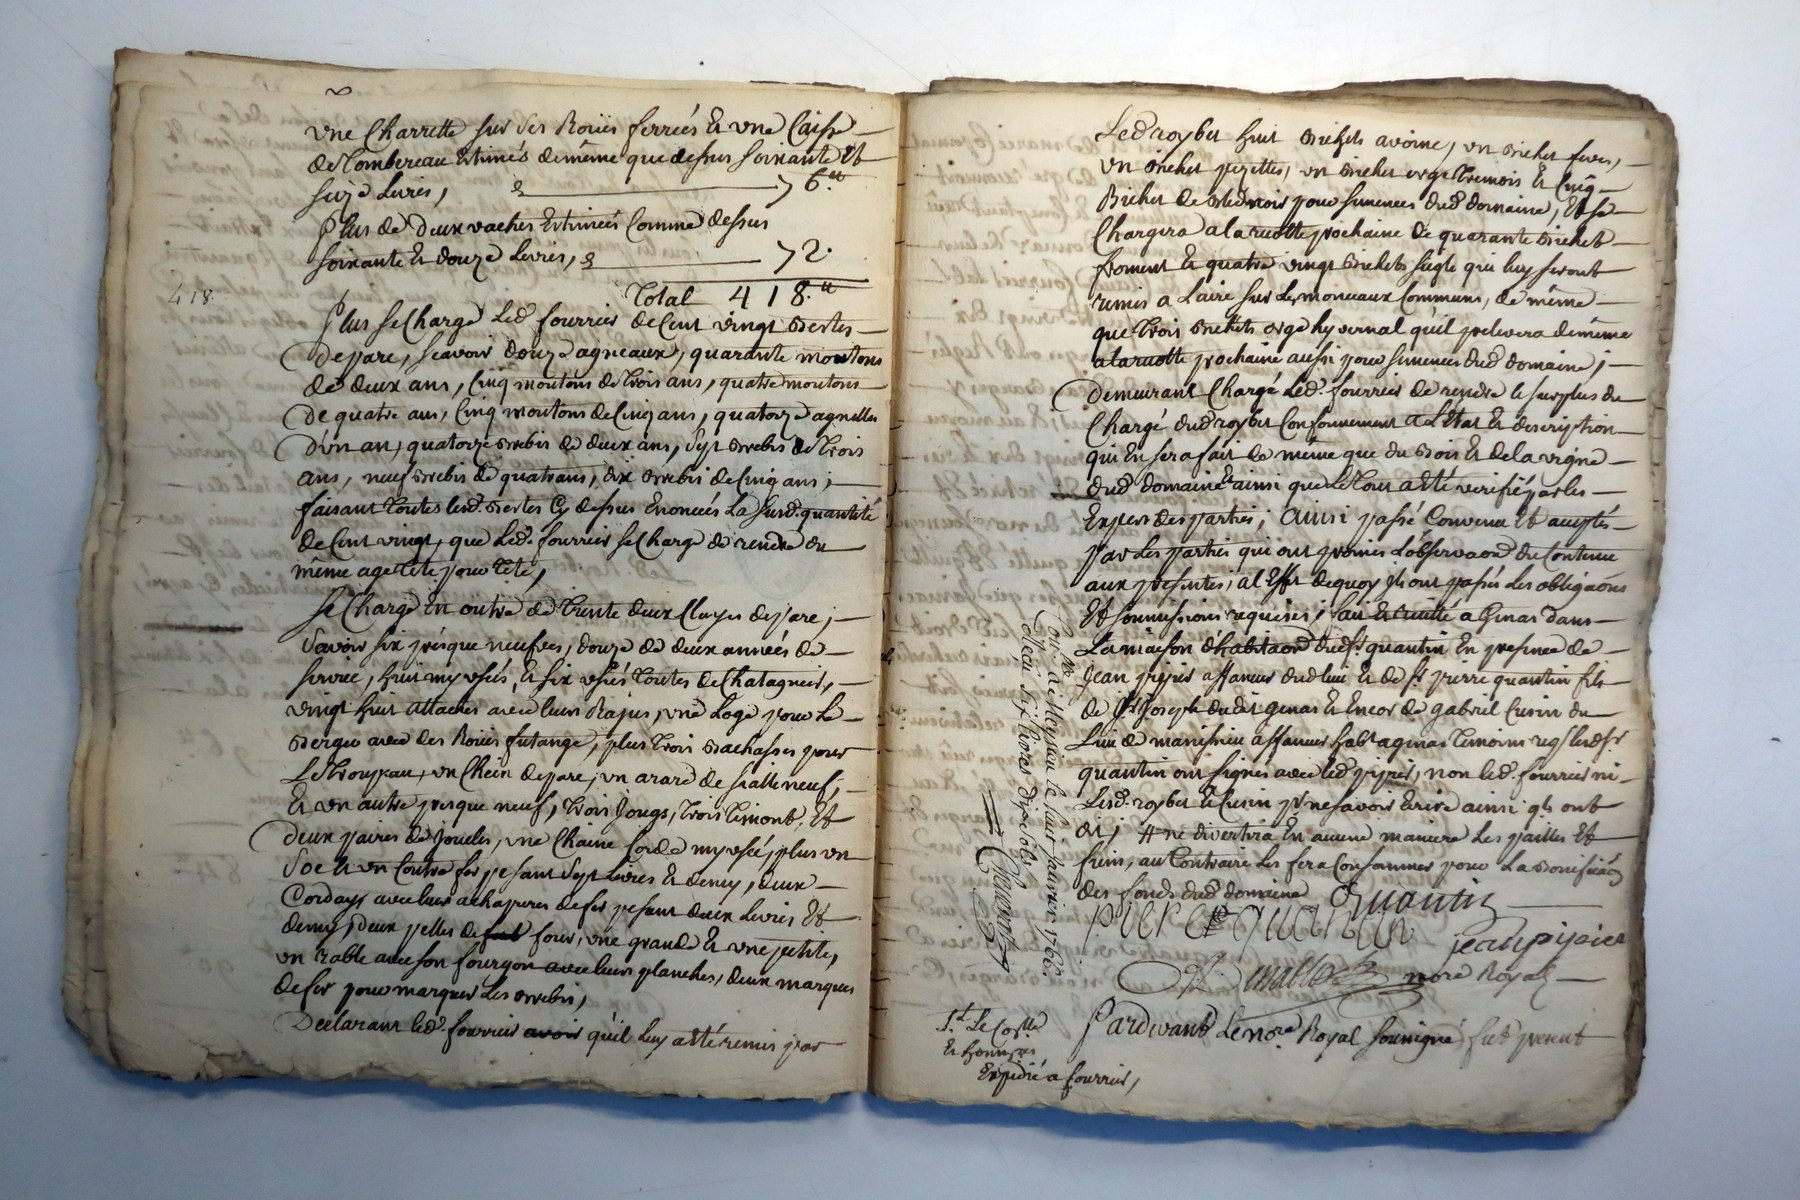 une Charrette sur ses Roües ferrées et une Caisse
de Tombereau Estimés de même que dessus soixante et
seize Livres, 76.#
Plus de deux vaches Estimées Comme dessus
soixante et douze Livres, 72.
Total 418.#
418.
Plus se Charge Led. fourrier de Cent vingt Bestes
depare, scavoir douze agneaux, quarante moutons
de deux ans, Cinq moutons de trois ans, quatre moutons
de quatre ans, Cinq moutons de Cinq ans, quatorze agnelles
d'un an, quatorze brebis de deux ans, sept brebis de trois
ans, neuf brebis de quatre ans, dix brebis de Cinq ans;
faisant toutes lesd. Bestes Cy dessus Enoncées La susd. quantité
de Cent vingt, que Led. fourrier se Charge de rendre du
même age tête pour tête,
se Charge En outre de trente deux Clayes depare;
savoir six presque neufves, douze de deux années de
service, huit my usés, et six usés toutes de Chatagnier,
vingt huit attaches avec leurs , une Loge pour Le
Berger avec des Roües futange, plus trois bachasses pour
Le troupeau, un Chien depare, un araré de neuf,
et un autre presque neuf, trois Jougs, trois timont, et
deux paires de Joucles, une Chaine my usée, plus un
soc et un Coutre fer pesant sept Livres et demy, deux
Cordays avec leurs de fer pesant deux Livres et
demy, deux pelles de four, une grande et une petite,
un rable avec son fourgon avec leurs planches, deux marques
de fer pour marquer Les brebis,
Declarant led. fourrier avoir qu'il Luy a Eté remis par
Led. roybet huit Bichets avoine, un Bichet feves,
un Bichet pezettes, un Bichet orge tremois et Cinq
Bichet de bled noir pour semences dud. domaine, Et se
Chargera a la recolte prochaine de quarante Bichets
froment et quatre vingt Bichets seigle qui luy seront
remis a L'aire sur Les monceaux Communs, de même
que trois Bichets orge hyvernal qu'il prelevera de même
a la recolte prochaine aussi pour semences dud. domaine;
demeurant Chargé Led. fourrier de rendre le surplus du
Chargé dud. roybet Conformement a L'Etat et description
qui En sera fait de même que du Bois et de la vigne
dud. domaine et ainsi que Le tout a été verifié par les
Expers des parties; ainsi passé Convenu et acceptés
par Les parties qui ont promis L'observaon du Contenu
aux presentes, a l'Effet de quoy ils ont passés Les obligaons
Et soumissions requises; fait Et recitté a Genas dans
La maison d'habitaon dud. sr. quantin En presence de
Jean pipier affaneur dud. lieu et de sr. pierre quantin fils
de sr. Joseph dudit genas et Encor de gabriel Cusin du
Lieu de affaneur habt. a genas temoins Lesd. srs.
quantin ont signés avec led. pipier, non led. fourrier ni
Lesd. roybet et Cusin pr. ne savoir Ecrire ainsi qu'ils ont
dit; # ne divertira En aucune maniere Les pailles Et
foins, au Contraire Les fera Consommer pour La Bonificaon
des fonds dud. domaine Quantin
piere quantin
jean pipier
nore Royal
Con.lé a Meyzieu le huit janvier 1768.
Reçu six livres dix sols
1.t Le Con.lle
Et honnres
Expedié a fourrier,
Pardevant Le Nore. Royal soussigné fut present